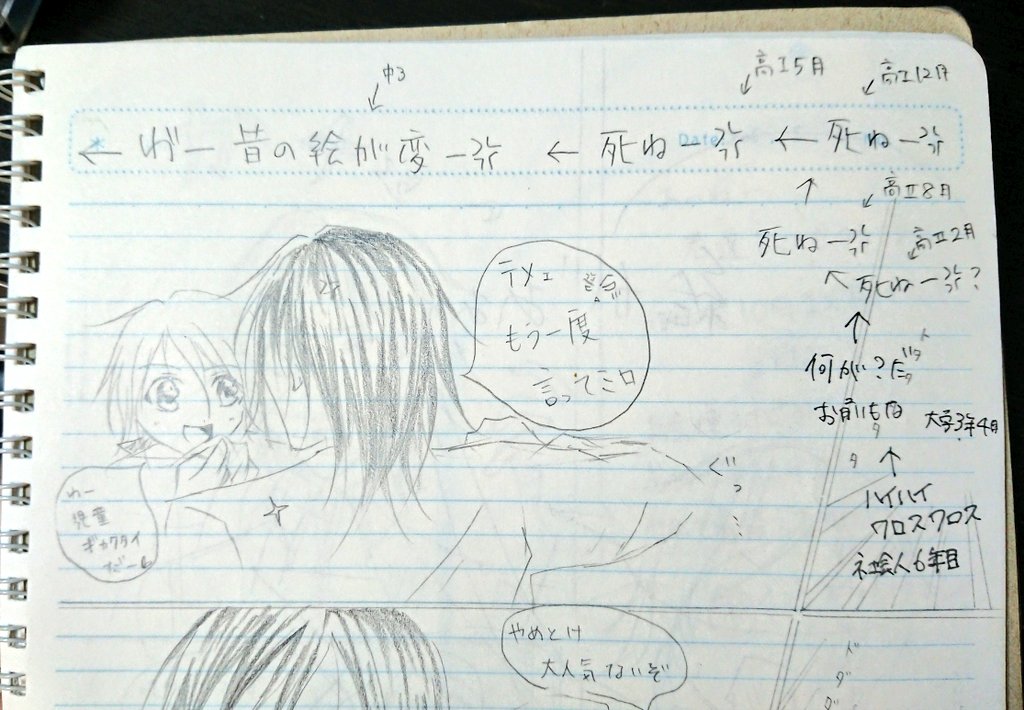 中3
高Ⅰ5月
高Ⅰ12月
← わー 昔の絵が変ー ← 死ね ← 死ねー
Date
↑
高Ⅱ8月
死ねー
高Ⅱ2月
死ねー?
↑
何が?
お前もな
大学3年4月
↑
ハイハイ
ワロスワロス
社会人6年目
テメェ
もう一度
言ってミロ
わー
児童
ギャクタイ
だー
ぐ"
っ
やめとけ
大人気ないぞ